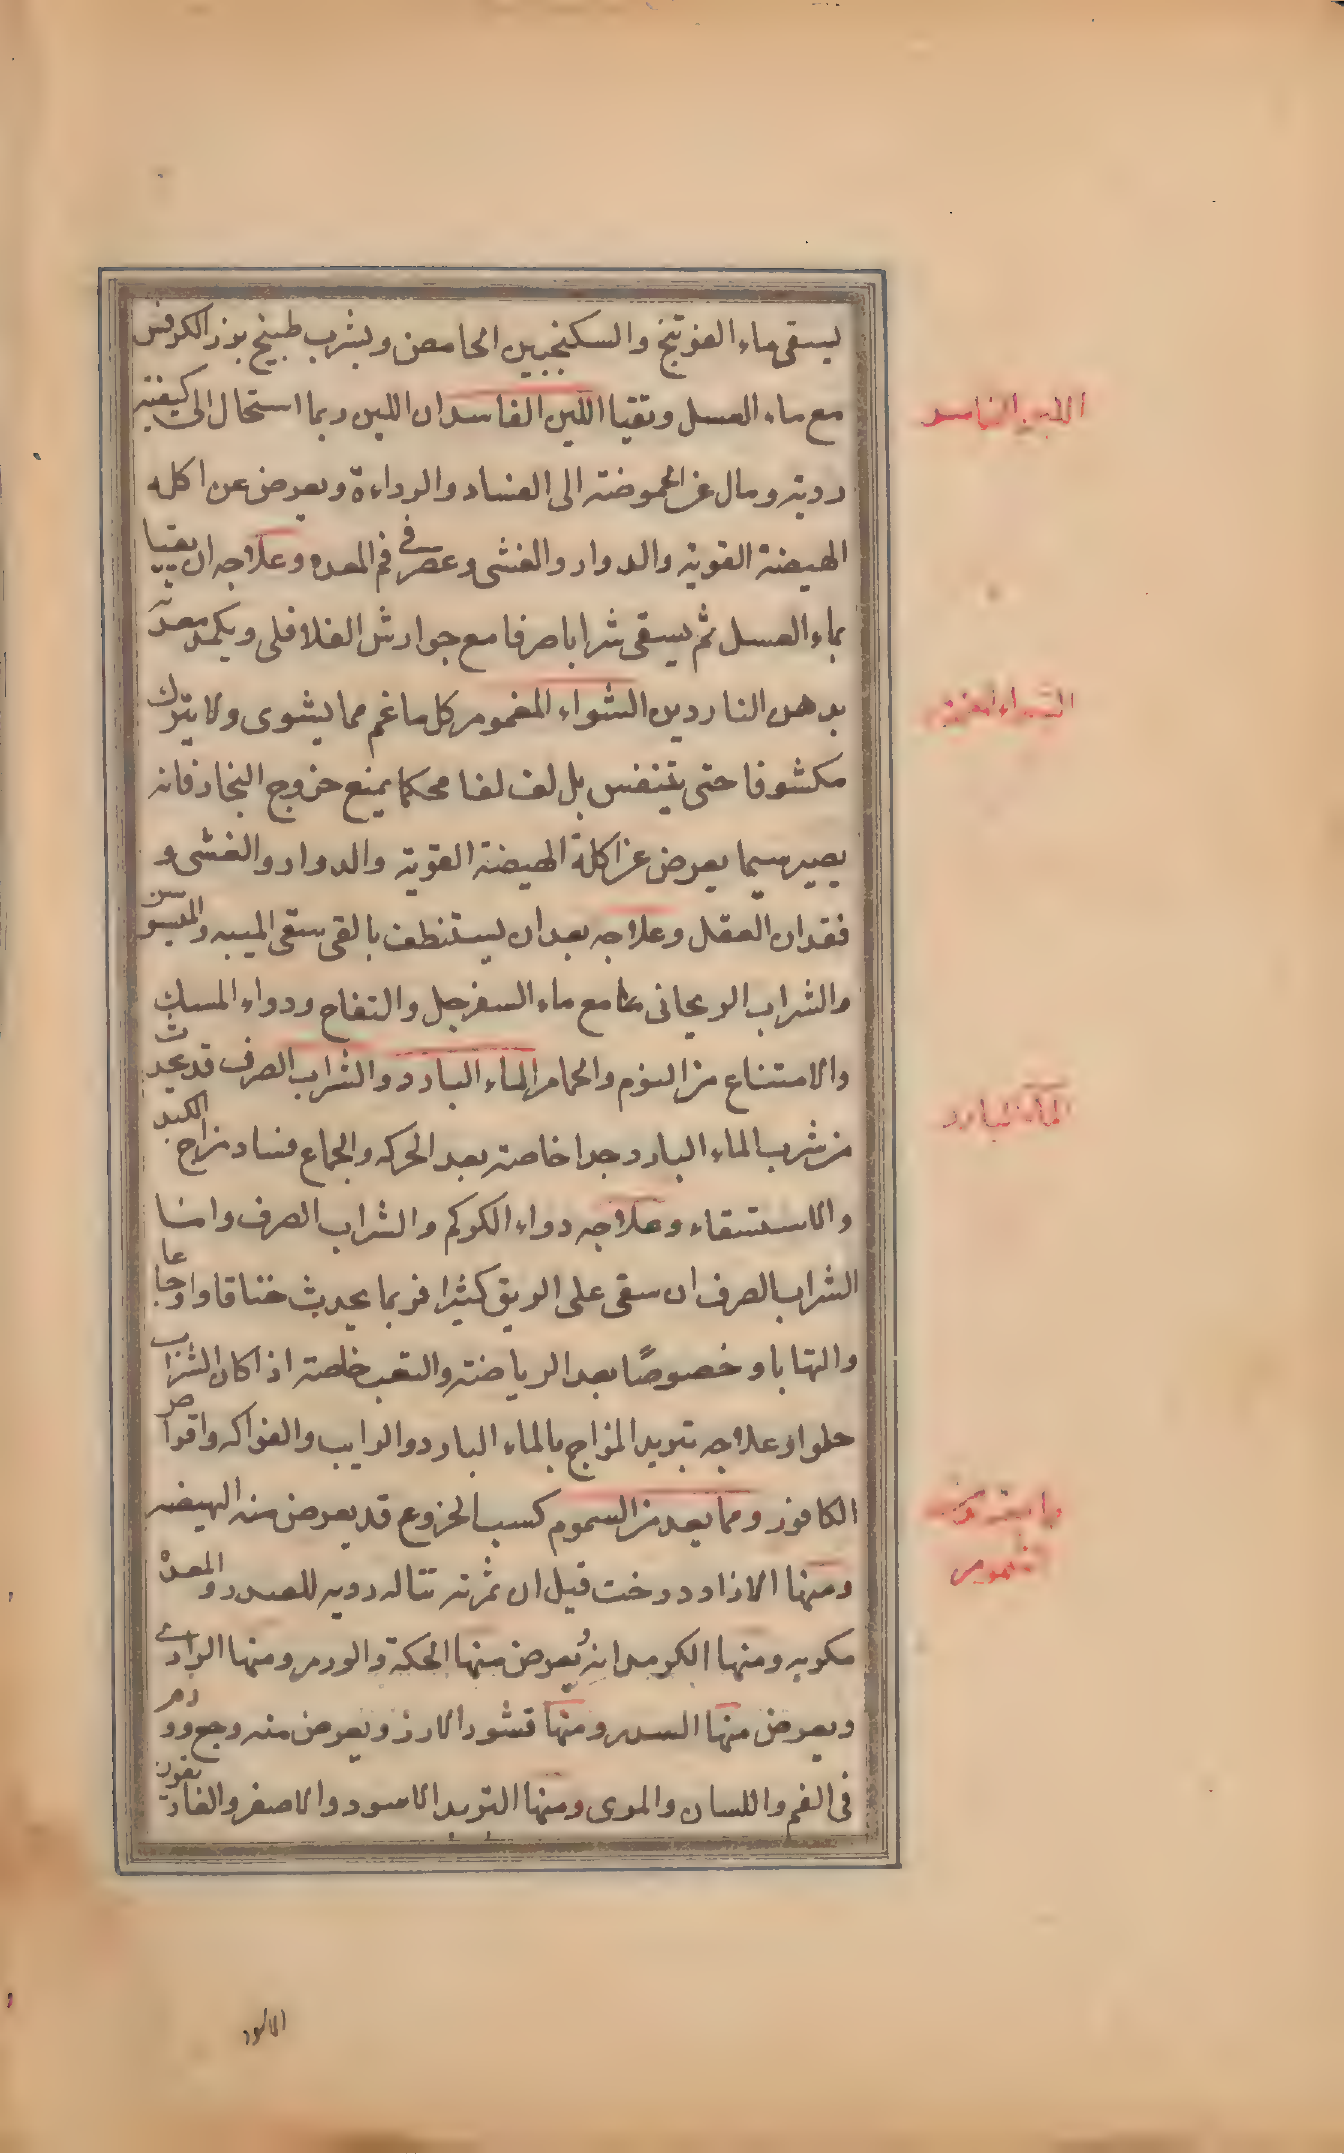 يسقى ماء الفوتنج والسكنجبين الحامض ويشرب طبيخ بزر الكرفس
مع ماء العسل وتقيا اللبن الفاسد ان اللبن ربما استحال الى كيفية
ردية ومال عن الحموضة الى الفساد والرداءة ويعرض عن اكله
الهيضة القوية والدوار والغشى وعصر فى فم المعده وعلاجه ان يقيا
بماء العسل ثم يسقى شرابا صرفا مع جوارش الفلافلى ويكمد معدته
بدهن الناردين الشواء المغموم كل ما غم مما يشوى ولا يترك
مكشوفا حتى يتنفس بل لف لفا محكما يمنع خروج البخار فانه
يصير سيما يعرض عن اكله الهيضة القوية والدوار والغشى و
فقدان العقل وعلاجه بعد ان يستنظف بالقى سقى الميبه والميسوسن
والشراب الريحانى مع ماء السفرجل والتفاح ودواء المسك
والامتناع من النوم والحمام الماء البارد والشراب الصرف قد يحدث
من شرب الماء البارد جدا خاصة بعد الحركه والجماع فساد مزاج الكبد
والاستسقاء وعلاجه دواء الكركم والشراب الصرف واما
الشراب الصرف ان سقى على الريق كثيرا فربما يحدث خناقا واوجاعا
والتهابا وخصوصًا بعد الرياضة والتعب خاصة اذا كان الشراب
حلوا وعلاجه تبريد المزاج بالماء البارد والرايب والفواكه واقراص
الكافور ومما يعد من السموم كسب الخروع قد يعرض منه الهيضه
ومنها الازاددرخت قيل ان ثمرته قتاله رديه للصدر والمعدة
مكربه ومنها الكرمدانه ويعرض منها الحكة والورم ومنها الرازى
ويعرض منها السدر ومنها قشور الارز ويعرض منه وجع وورم
فى الفم واللسان والمرى ومنها التربد الاسود والاصفر والغاريقون
اللبن الفاسد
الشواء المغموم
الماء البارد
السموم